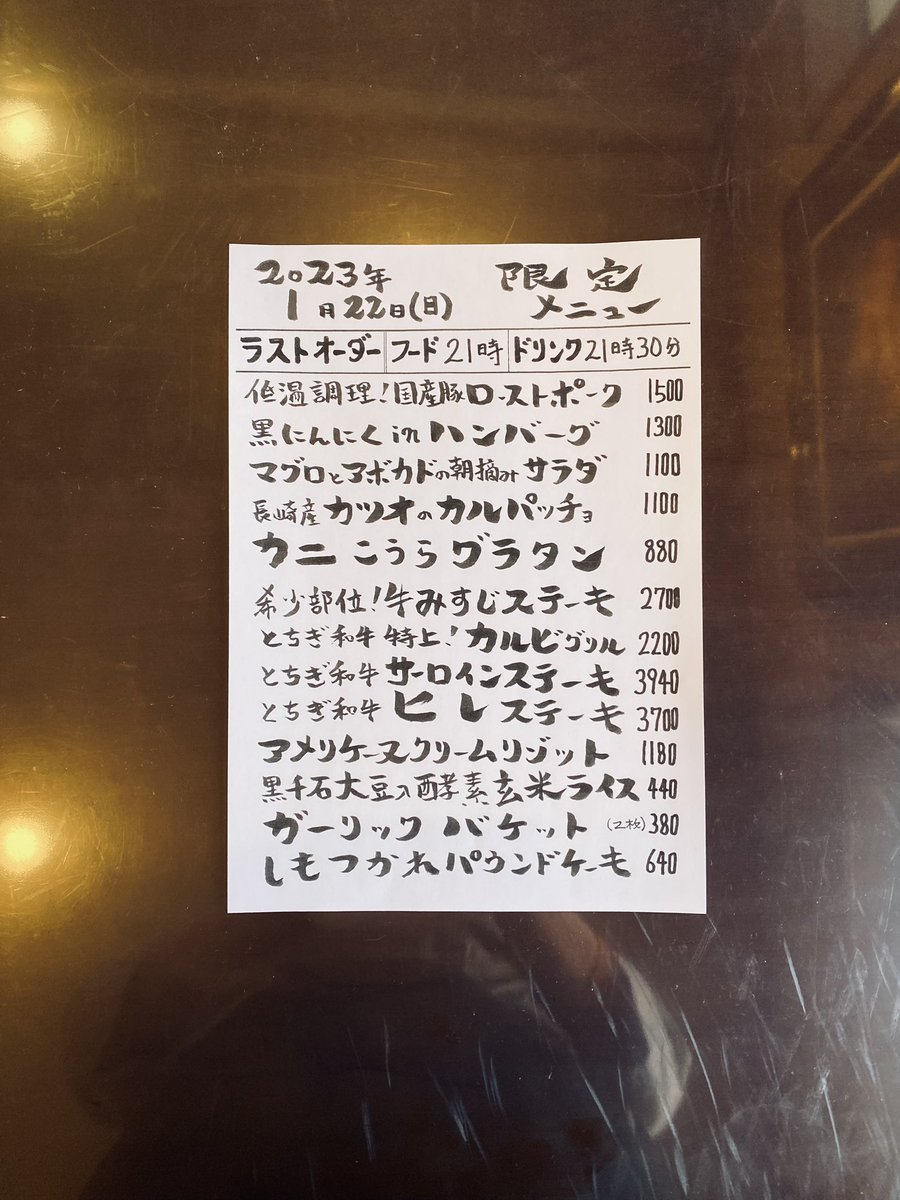 2023年 限定
1月22日(日) メニュー
ラストオーダー フード21時 ドリンク21時30分
低温調理!国産豚ローストポーク 1500
黒にんにくinハンバーグ 1300
マグロとアボカドの朝摘みサラダ 1100
長崎産カツオのカルパッチョ 1100
カニこうらグラタン 880
希少部位!牛みすじステーキ 2700
とちぎ和牛特上!カルビグリル 2200
とちぎ和牛サーロインステーキ 3940
とちぎ和牛ヒレステーキ 3700
アメリケーヌクリームリゾット 1180
黒千石大豆入酵素玄米ライス 440
ガーリックバケット (2枚) 380
しもつかれパウンドケーキ 640